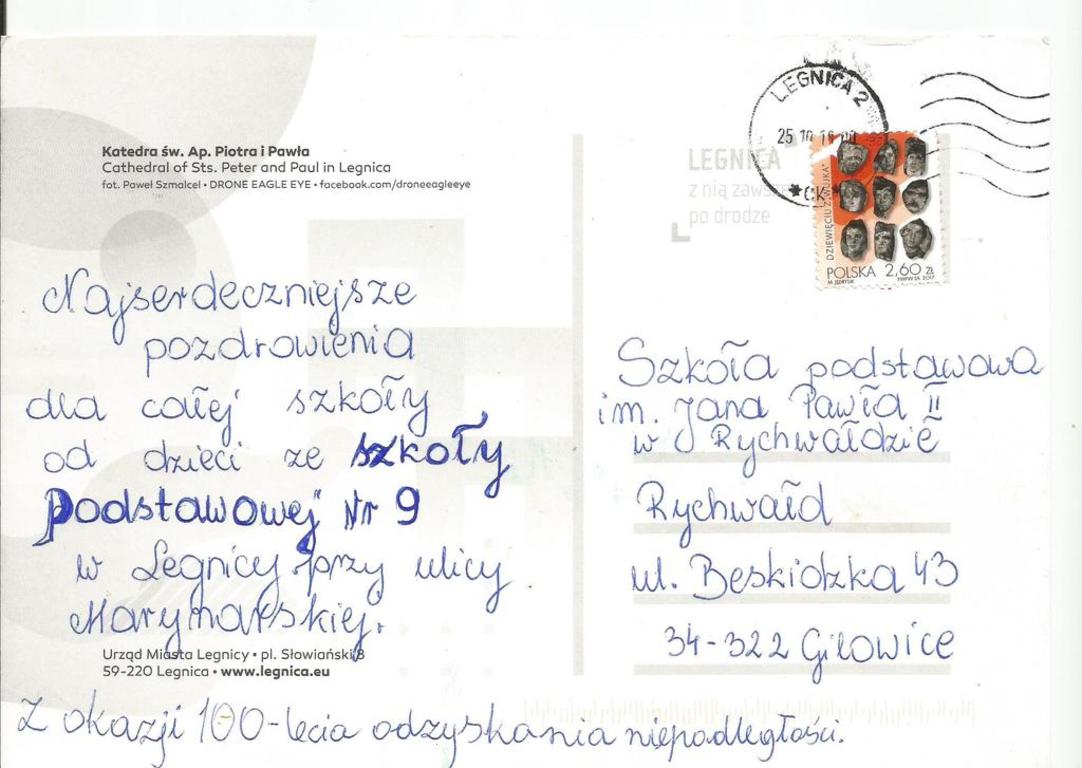 Katedra św. Ap. Piotra i Pawła
Cathedral of Sts. Peter and Paul in Legnica
fot. Paweł Szmalcel • DRONE EAGLE EYE • facebook.com/droneeagleeye
Najserdeczniejsze
pozdrowienia
dla całej szkoły
od dzieci ze szkoły
podstawowej Nr 9
w Legnicy przy ulicy
Marynarskiej.
Urząd Miasta Legnicy • pl. Słowiański 8
59-220 Legnica • www.legnica.eu
Z okazji 100-lecia odzyskania niepodległości.
LEGNICA 2
25 10
*CK*
LEGNICA
z nią zawsze
po drodze
DZIEWIĘCIU Z "WUJKA"
POLSKA 2,60 zł
Szkoła podstawowa
im. Jana Pawła II
w Rychwałdzie
Rychwałd
ul. Beskidzka 43
34-322 Gilowice